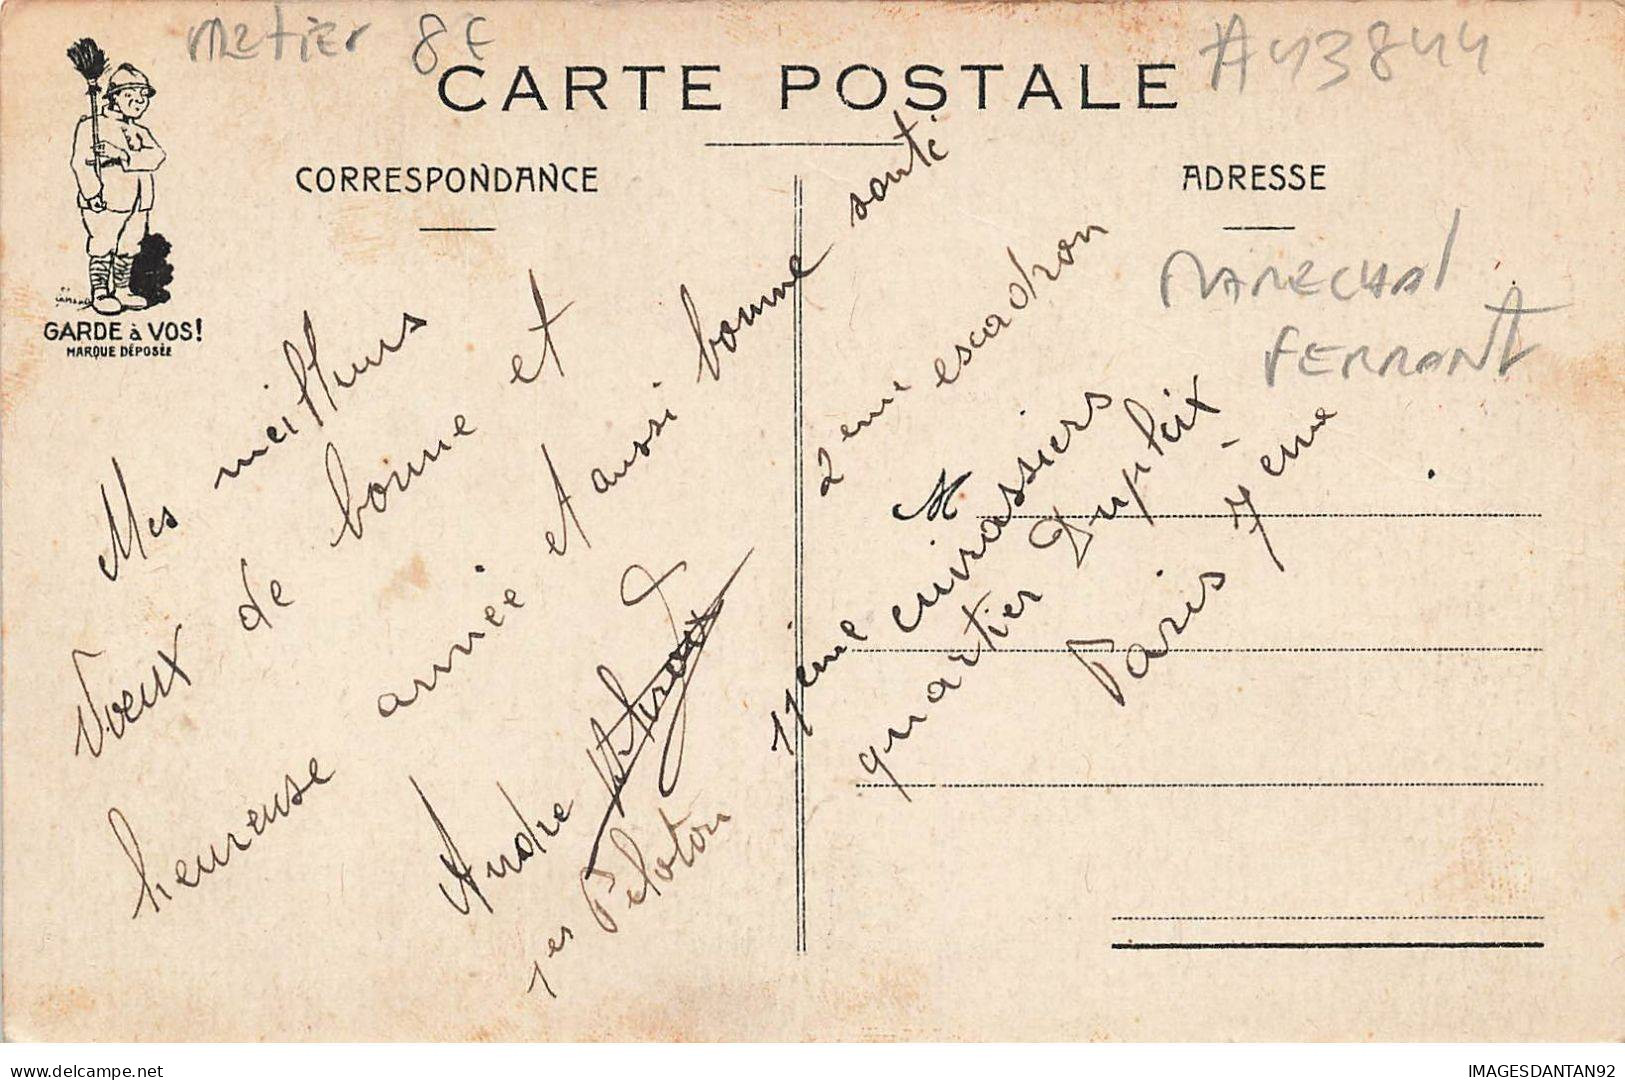 Metier 8E
#43844
CARTE POSTALE
CORRESPONDANCE
ADRESSE
GARDE à VOS!
MARQUE DÉPOSÉE
MARECHAl
FERRANT
Mes meilleurs
Voeux de bonne et
heureuse année et aussi bonne santé
André
1er Peloton
2eme escadron
M
11ème cuirassiers
quartier Dupleix
Paris 7eme
IMAGESDANTAN92
delcampe.net